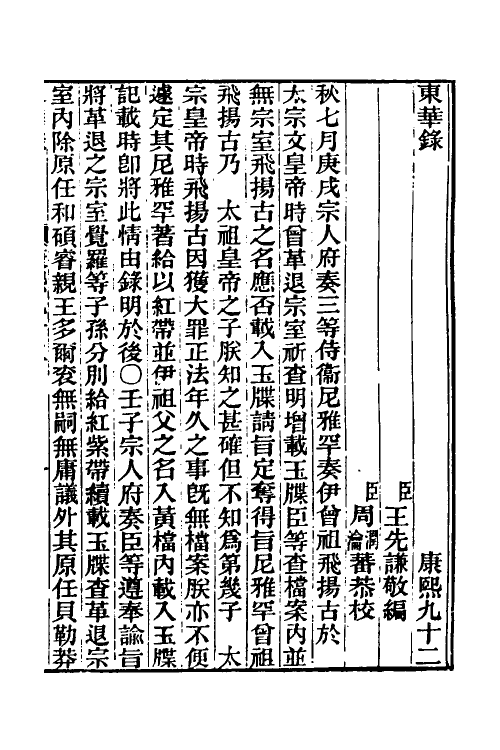 東華錄 康熙九十二
臣王先謙敬編
臣周潤蕃瀹蕃恭校
秋七月庚戌宗人府奏三等侍衞尼雅罕奏伊曾祖飛揚古於
太宗文皇帝時曾革退宗室祈查明增載玉牒臣等查檔案內並
無宗室飛揚古之名應否載入玉牒請旨定奪得旨尼雅罕曾祖
飛揚古乃 太祖皇帝之子朕知之甚確但不知爲第幾子 太
宗皇帝時飛揚古因獲大罪正法年久之事旣無檔案朕亦不便
遽定其尼雅罕著給以紅帶並伊祖父之名入黃檔內載入玉牒
記載時卽將此情由錄明於後〇壬子宗人府奏臣等遵奉諭旨
將革退之宗室覺羅等子孫分別給紅紫帶續載玉牒查革退宗
室內除原任和碩睿親王多爾袞無嗣無庸議外其原任貝勒莽